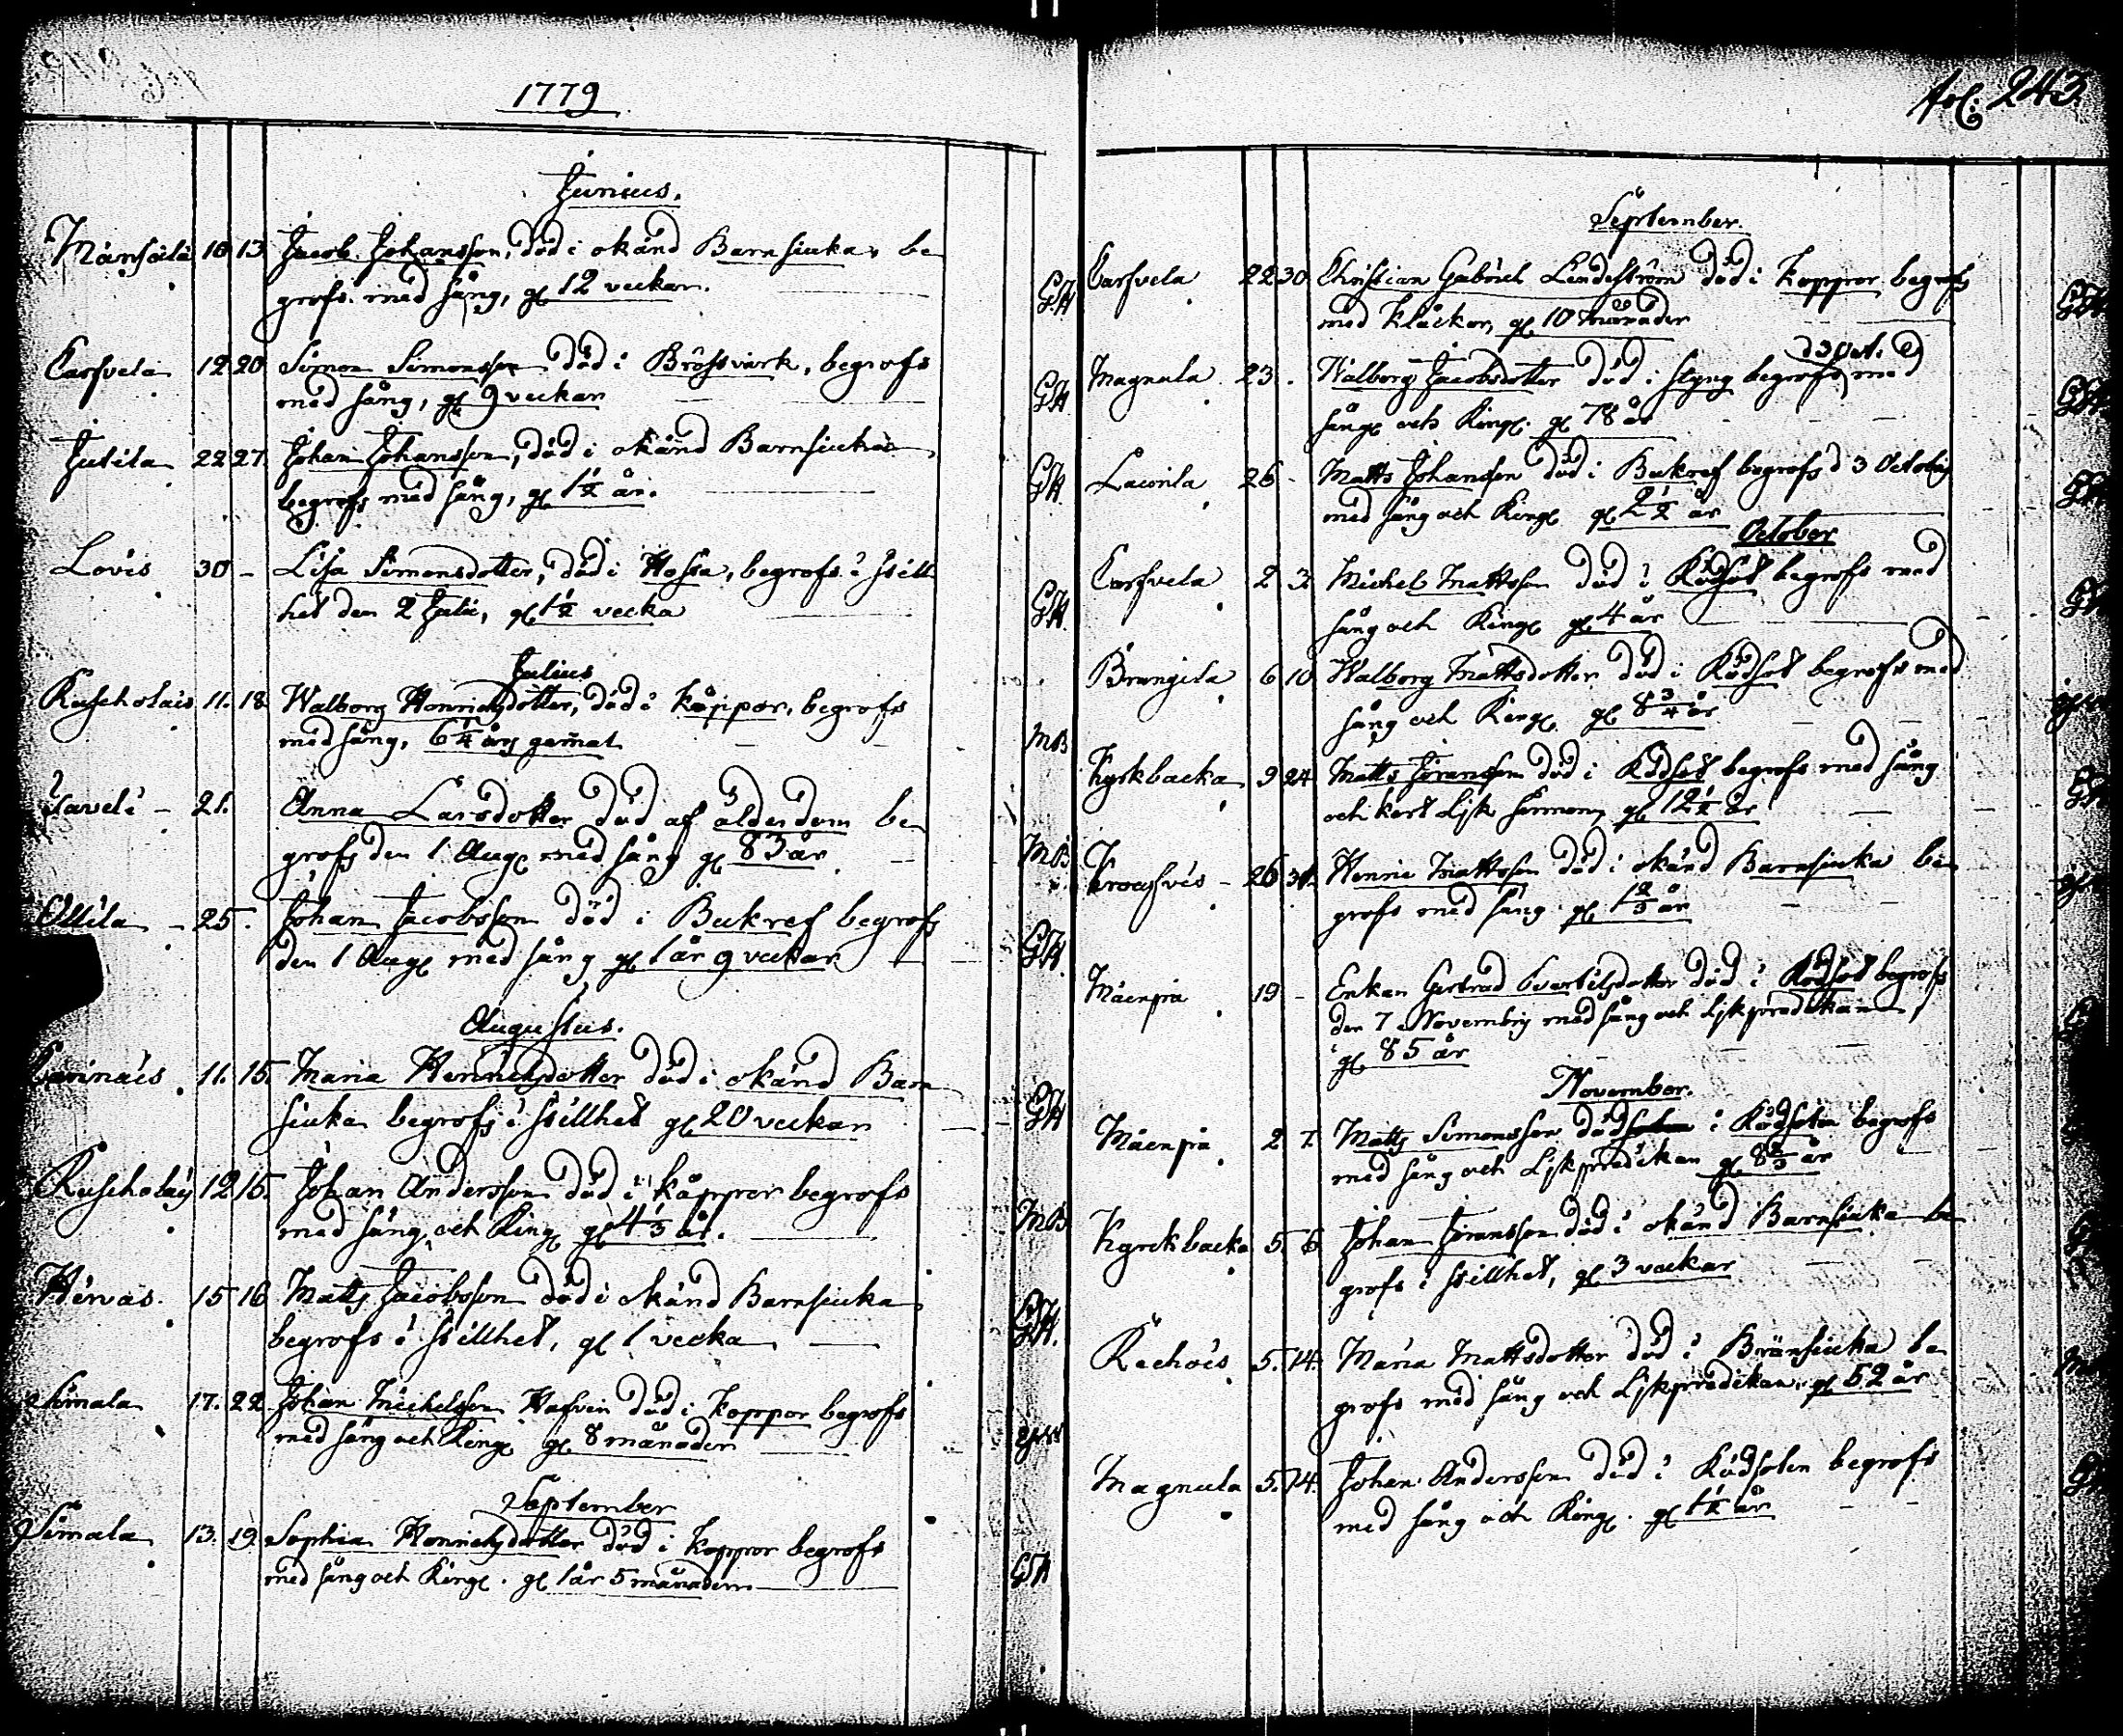 1779
Junius.
Månsala 10 13 Jacob Johansson, död i okänd Barnsiuka, be
grofs. med sång, gl 12 veckor. GH
Carfvela 12 20 Simon Simonsson död i Bröstvärk, begrofs
med sång, gl 9 veckor GH
Jutila 22 27 Johan Johansson, död i okänd Barnsiuka
begrofs med sång, gl 1½ år. GH
Lovis 30 - Lisa Simonsdotter, död i Hosta, begrofs i still
het den 2 Julii, gl 1½ vecka GH
Julius
11. 18 Walborg Henrichsdotter, död i koppor, begrofs
med sång, 6¼ års gamal MB
Saveli - 21. Anna Larsdotter död af ålderdom be
grofs den 1 Aug med sång gl 83 år MB
Ollila - 25. Johan Jacobsson död i Bukref begrofs
den 1 Aug med sång gl 1 år 9 veckor GH
Augustus.
11. 15. Maria Henrichsdotter död i okänd Barn
siuka begrofs i stillhet gl 20 veckor GH
12 15. Johan Andersson död i koppor begrofs
med sång och Ring gl 4⅓ år. MB
Hirvas. 15 16 Matts Jacobsson död i okänd Barnsiuka
begrofs i stillhet, gl 1 vecka GH.
Simala 17. 22 Johan Michelsson Hafvin död i koppor begrofs
med sång och Ring gl 8 månader
September
Simala 13. 19. Sophia Henrichsdotter död i koppor begrofs
med sång och Ring. gl 1 år 5 månader GH
fol. 243
September.
Carfvela 22 30 Christian Gabriel Lindeström död i koppor begrofs
med klåckor, gl 10 månader
d 3 Oct.
Magnula 23. Walborg Jacobsdotter död i styng begrofs med
sång och Ring. gl 78 år
26 - Matts Johansson död i Bukref begrofs d 3 Octobris
med sång och Ring gl 2½ år
October
Carfvela 2 3. Michel Mattsson död i Rödsot begrofs med
sång och Ring gl 4 år
Brangila 6 10 Walborg Mattsdotter död i Rödsot begrofs med
sång och Ring, gl 8¾ år
Kyrkbacka 9 24 Matts Jöransson död i Rödsot begrofs med sång
och kort Lijk sermon, gl 12½ år
26 31. Henric Mattsson död i okänd Barnsiuka be
grofs med sång gl 1⅔ år
Mäenpä 19 - Enkan Gertrud Bertilsdotter död i Rödsot begrofs
den 7 Novembris med sång och Lijkpredikan
gl 85 år
November.
Mäenpä 2 7. Matts Simonsson död i Rödsoten begrofs
med sång och Lijkpredikan gl 8⅔ år
Kyrckbacka 5. 6. Johan Jöransson död i okänd Barnsiuka be
grofs i stillhet, gl 3 veckor
Rechois 5. 14. Maria Mattsdotter död i Bränsiuka be
grofs med sång och Lijkpredikan. gl 52 år
Magnula 5. 14. Johan Andersson död i Rödsoten begrofs
med sång och Ring. gl 1½ år